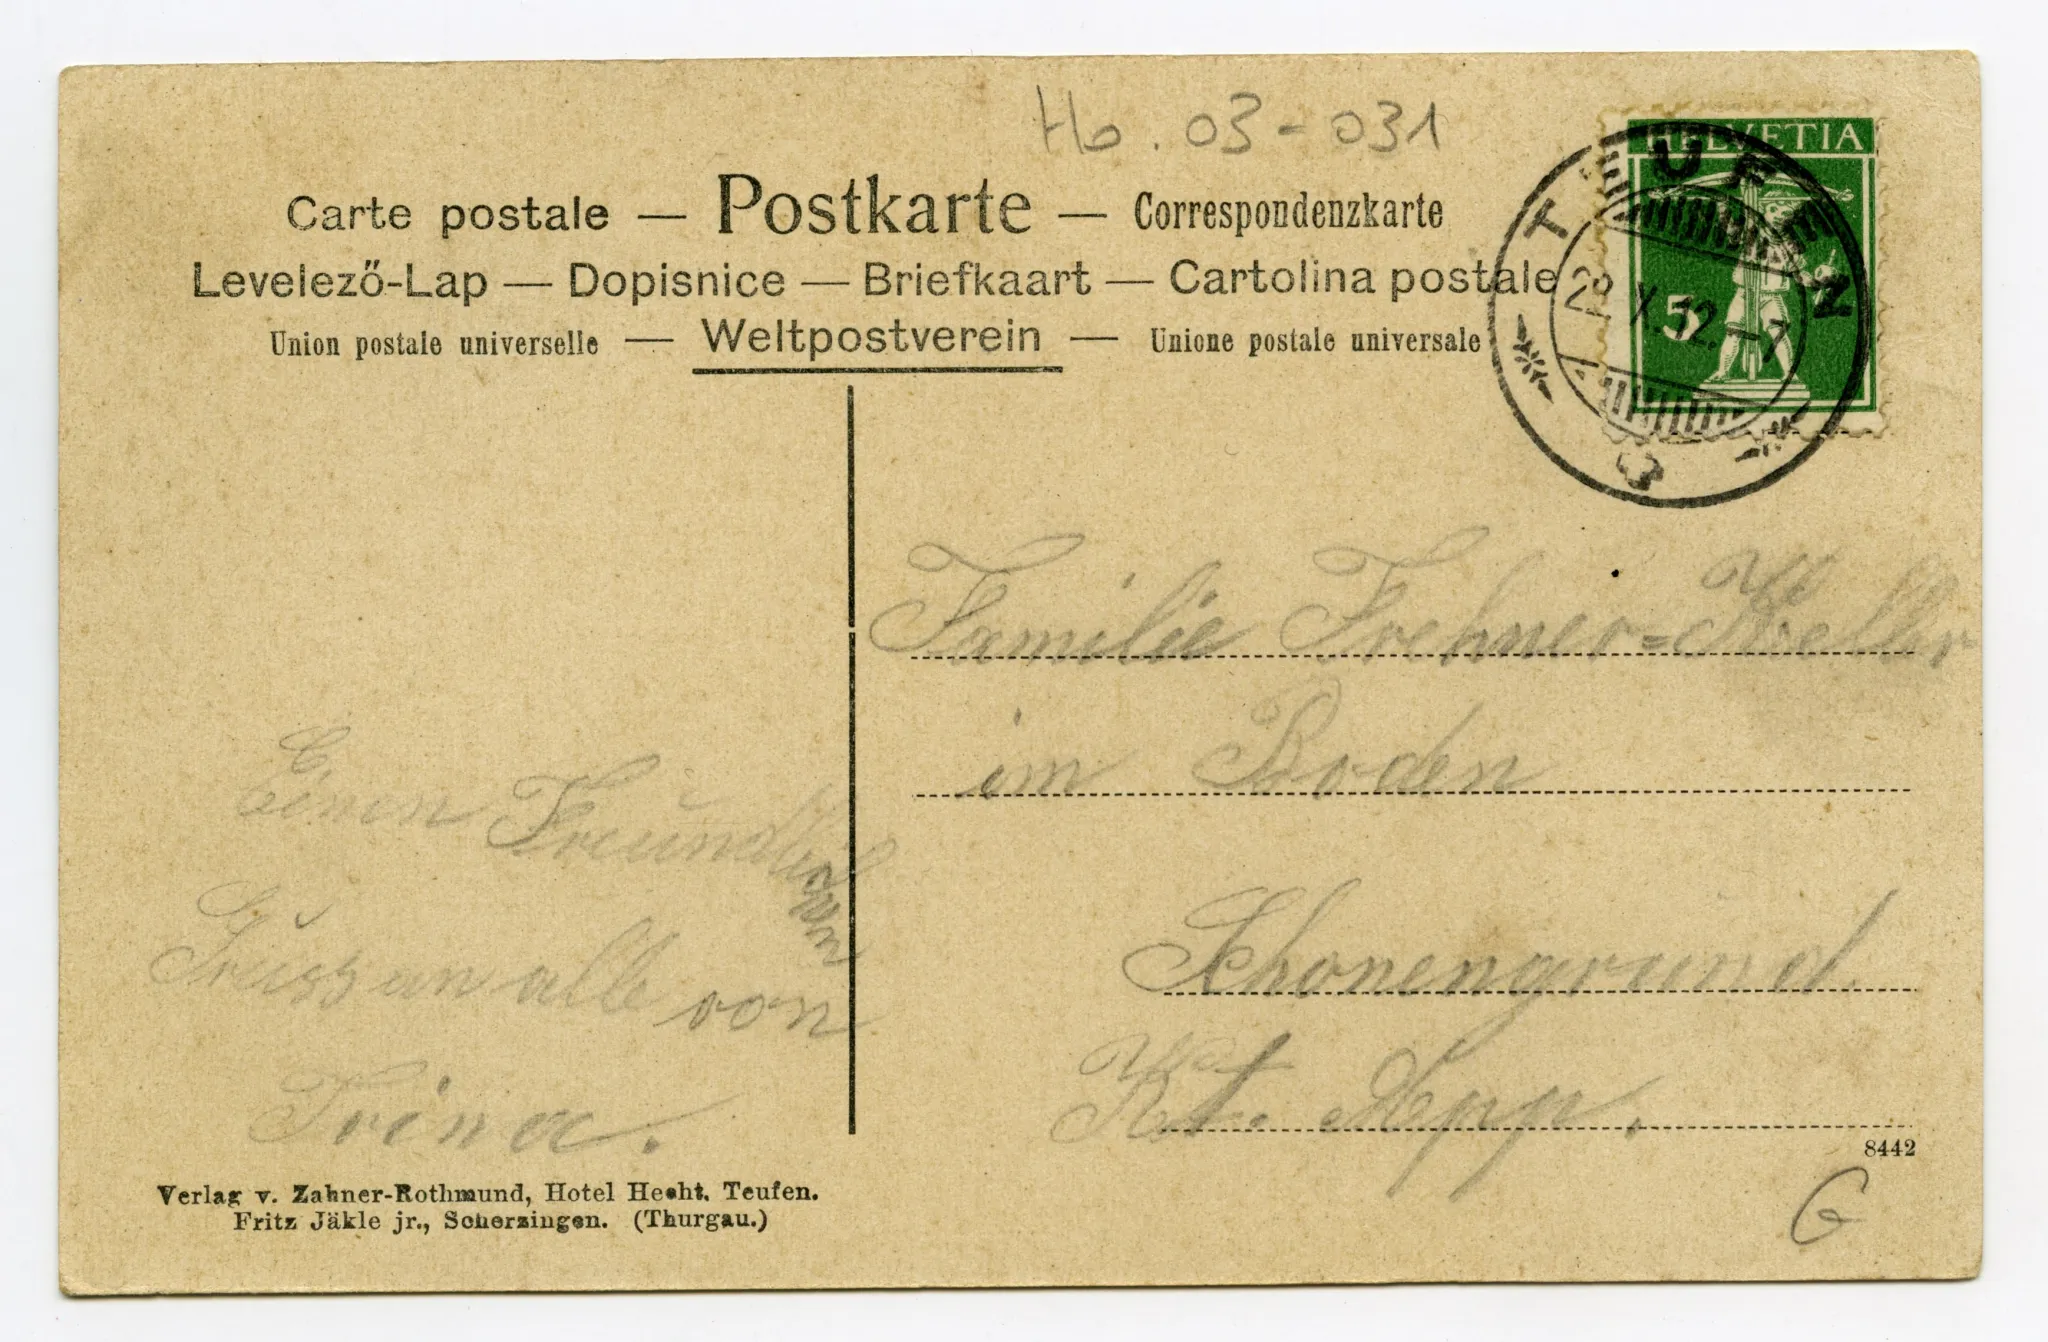 Ho. 03-031
Carte postale — Postkarte — Correspondenzkarte
Levelező-Lap — Dopisnice — Briefkaart — Cartolina postale
Union postale universelle — Weltpostverein — Unione postale universale
HELVETIA
5
TEUFEN
X.12.-7
Familie Frehner=Keller
im Boden
Schonengrund
Kt. App.
Einen Freundlichen
Gruss an alle von
Trina.
8442
G
Verlag v. Zahner-Rothmund, Hotel Hecht. Teufen.
Fritz Jäkle jr., Scherzingen. (Thurgau.)